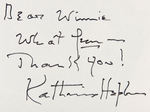 Dear Winnie
What fun —
Thank you!
Katharine Hepburn